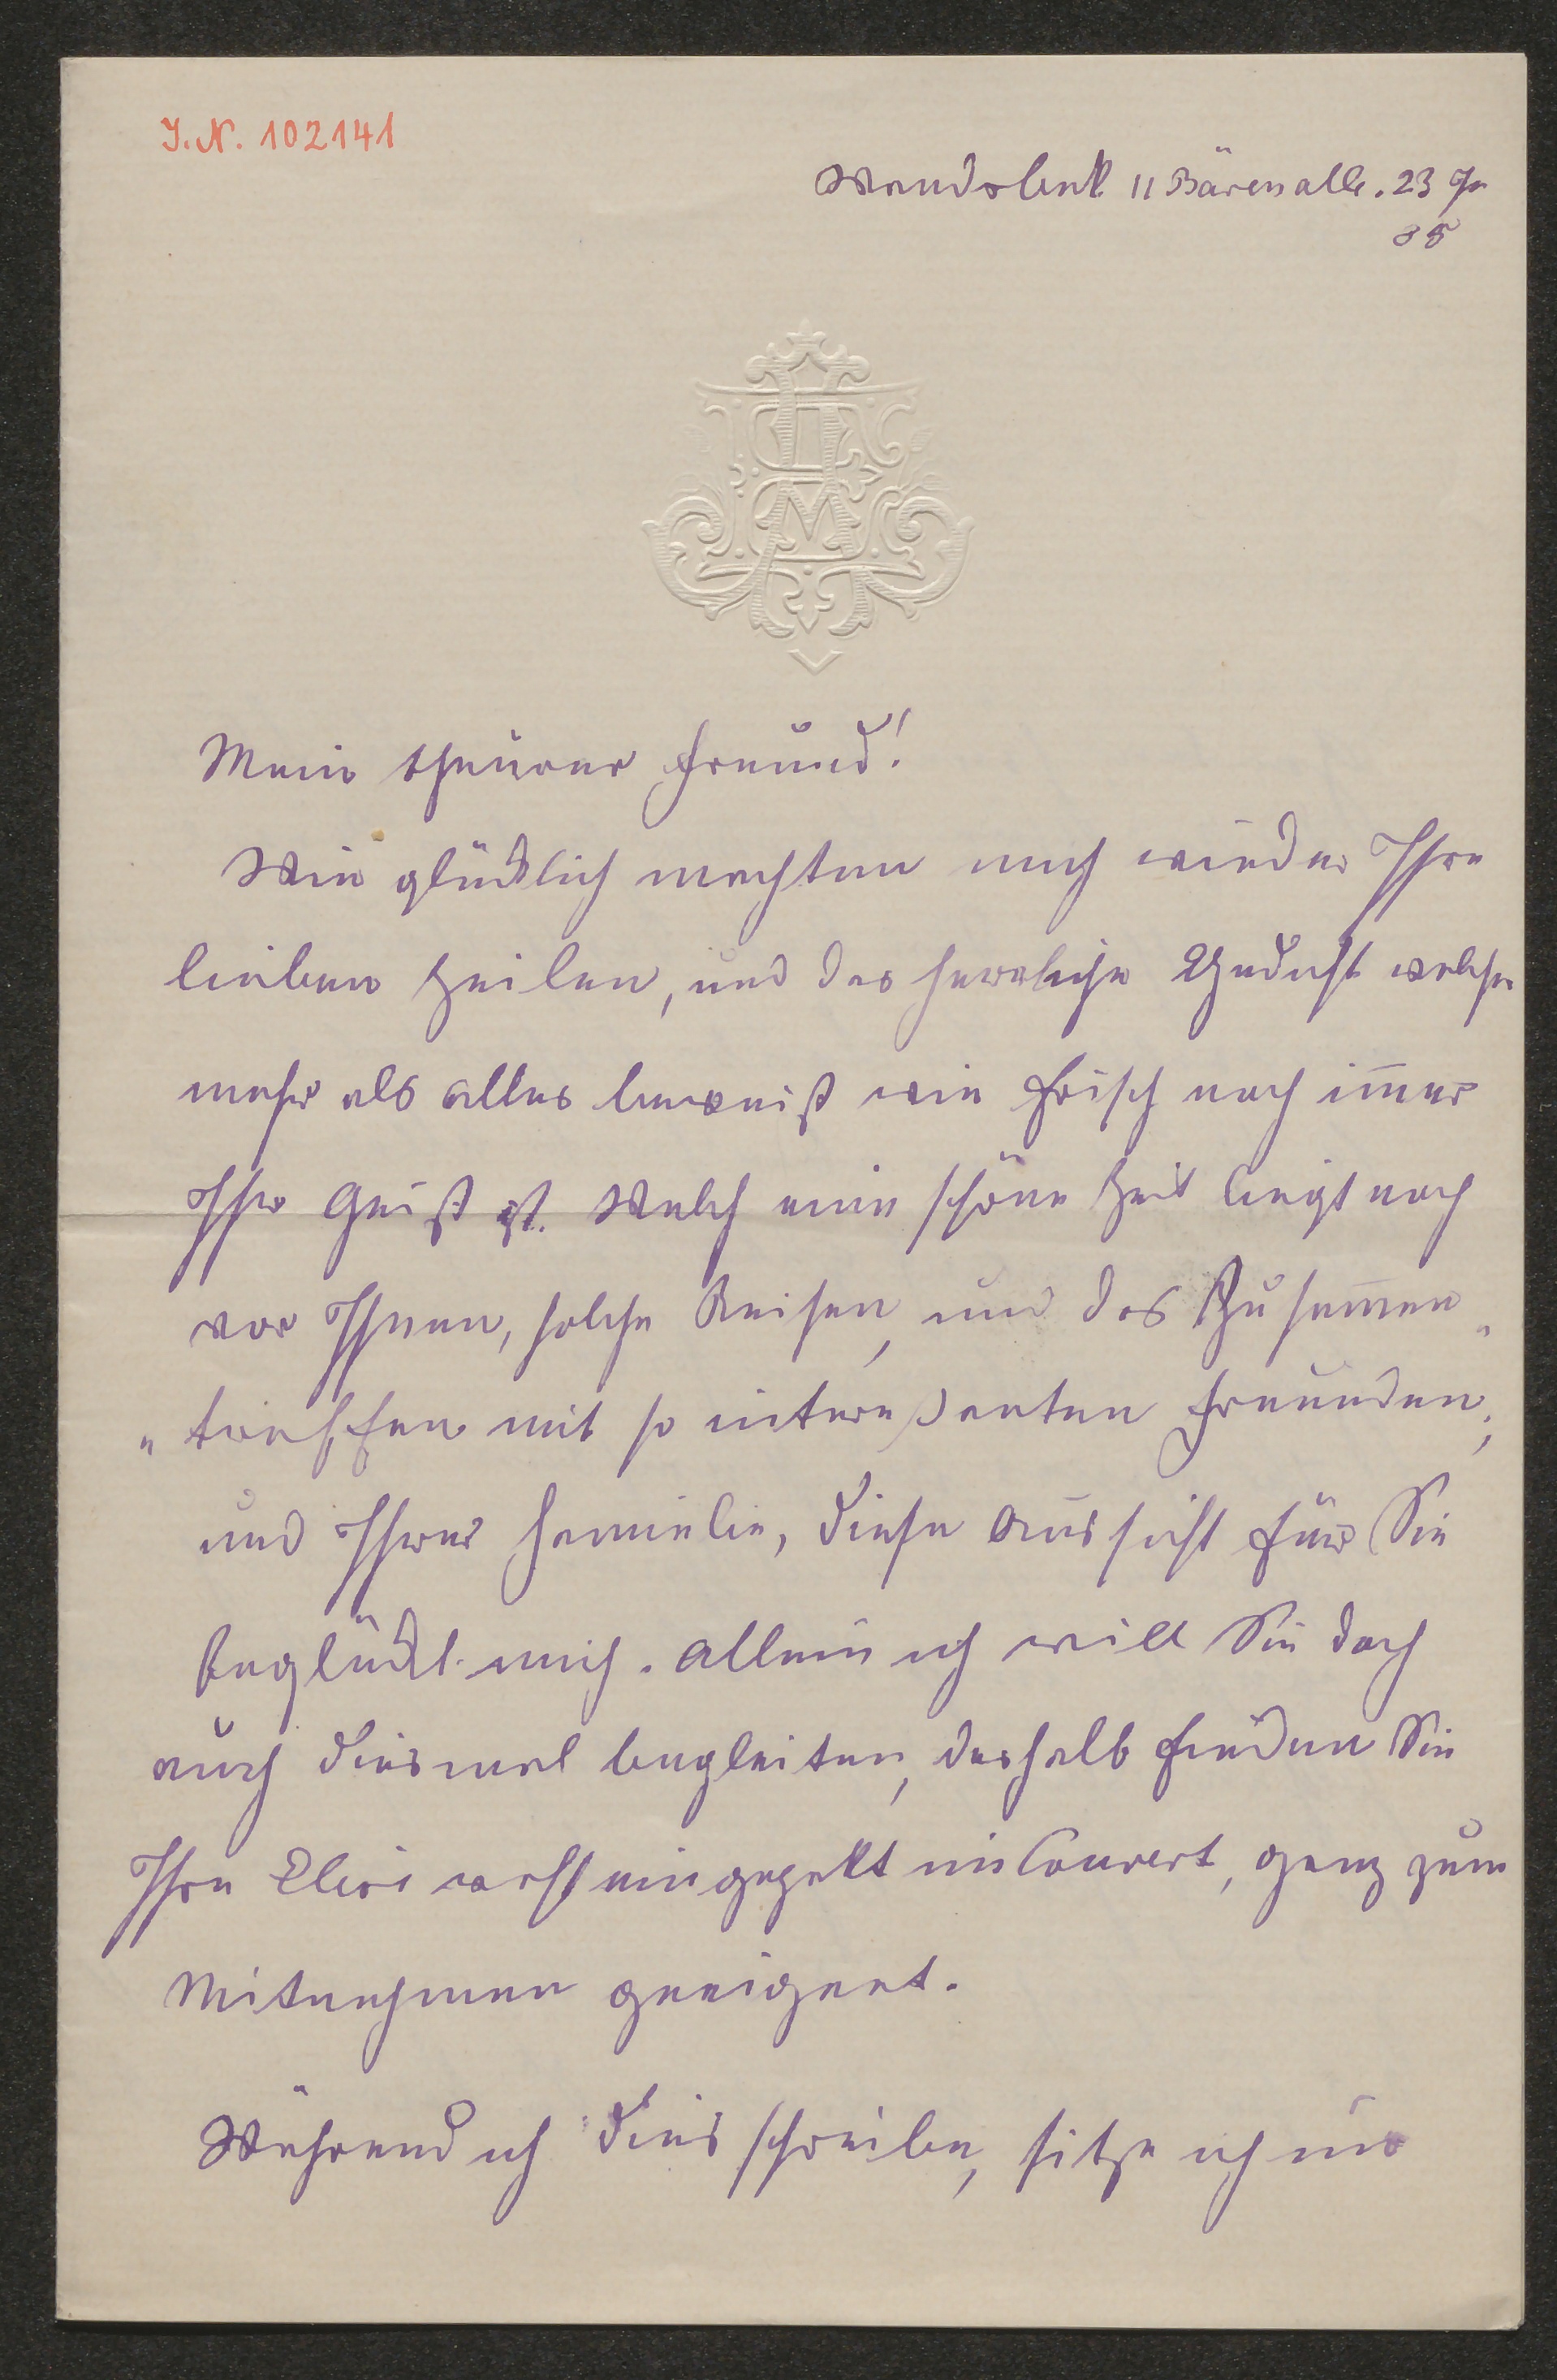 I.N. 102141
Wandsbek 11 Bärenalle. 23 Ju
85
Mein theurer Freund!
Wie glücklich machten mich wieder Ihre
lieben Zeilen, und das herrliche Gedicht welches
mehr als alles beweißt wie frisch noch im̅er
Ihr Geist ist. Welch eine schöne Zeit liegt noch
vor Ihnen, solche Reisen, und das Zusam̅en„
„treffen mit so interessanten Freunden,
und Ihrer Familie, diese Aussicht für Sie
beglückt mich. Allein ich will Sie doch
auch diesmal begleiten, deshalb finden Sie
Ihre Elise eingepackt im Couvert, ganz zum
Mitnehmen geeignet.
Während ich dies schreibe, sitze ich im